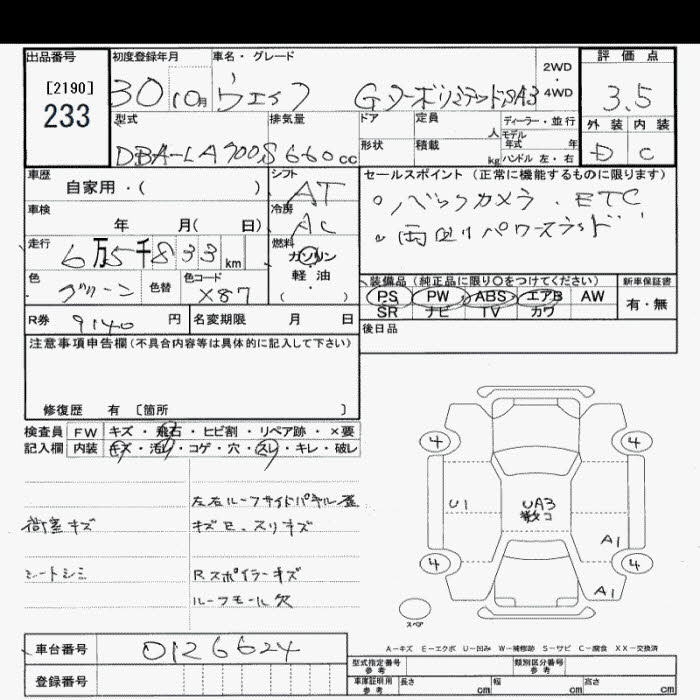 出品番号 初度登録年月 車名・グレード 2WD・4WD 評価点
[2190]
233
30 10月 ウェイク Gターボリミテッド SAⅢ 3.5
型式 排気量 ドア 定員 人 ディーラー・並行 外装 内装
DBA-LA700S 660cc 形状 積載 kg モデル年式 年 ハンドル 左・右 D C
車歴 シフト セールスポイント (正常に機能するものに限ります)
自家用・( ) AT 。バックカメラ . ETC
車検 冷房
年 月( 日) AC 。両側パワースライド
走行 燃料
6万5千833km ガソリン
軽・油
( )
色 グリーン 色替 色コード X87
装備品 (純正品に限り〇をつけてください) 新車保証書
PS PW ABS エアB AW 有・無
SR ナビ TV カワ
R券 9140 円 名変期限 月 日 後日品
注意事項申告欄(不具合内容等は具体的に記入して下さい)
修復歴 有 〔箇所 〕
検査員 FW キズ・飛石・ヒビ割・リペア跡・×要
記入欄 内装 キズ・汚れ・コゲ・穴・スレ・キレ・破レ
左右ルーフサイドパネル
荷室キズ キズ スリキズ
シートシミ Rスポイラーキズ
ルーフモール欠
4 4
U1 UA3 数コ
A1
4 4
A1
スペア
A-キズ E-エクボ U-凹み W-補修跡 S-サビ C-腐食 XX-交換済
車台番号 0126624 型式指定番号 参考 類別区分番号 参考
登録番号 車庫証明用 参考 長さ cm 幅 cm 高さ cm